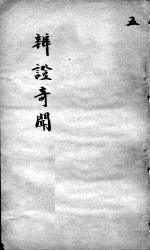 五
辨證奇聞